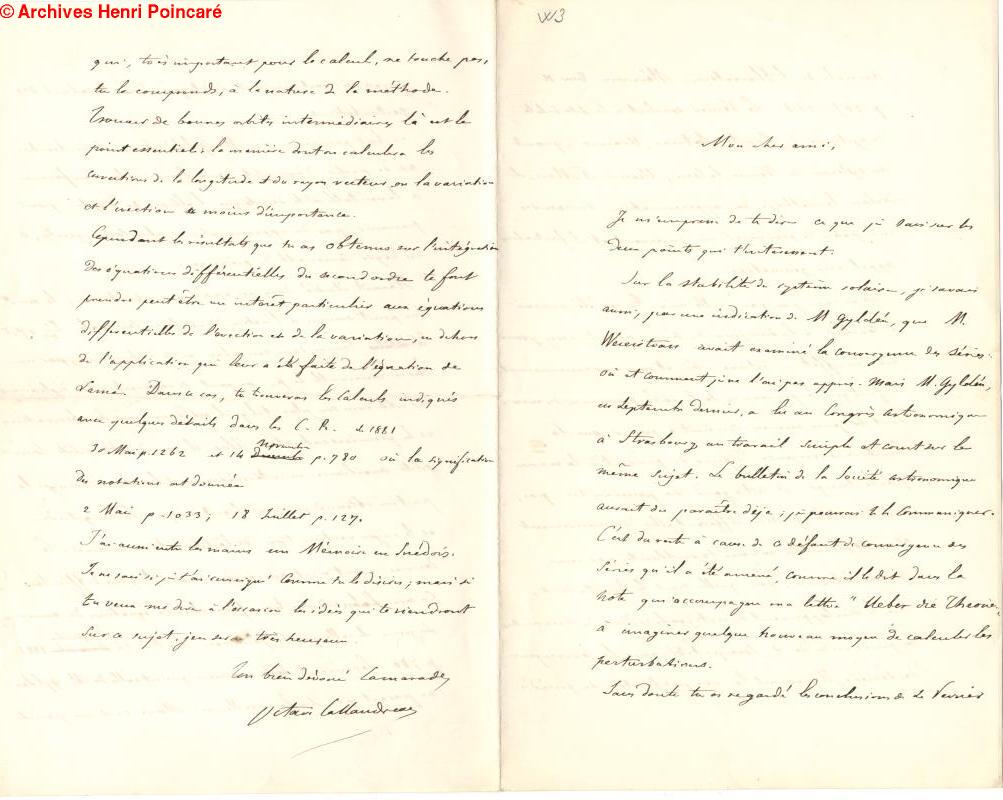 © Archives Henri Poincaré
W3
Mon cher ami,
Je m'empresse de te dire ce que je sais sur les
deux points qui t'intéressent.
Sur la stabilité du système solaire, je savais
aussi, par une indication de M. Gyldén, que M.
Weierstrass avait examiné la convergence des séries.
où et comment, je ne l'ai pas appris. Mais M. Gyldén,
en Septembre dernier, a lu au Congrès astronomique
à Strasbourg un travail simple et court sur le
même sujet. Le bulletin de la Société astronomique
aurait du paraître déjà; je pourrai te le communiquer.
C'est du reste à cause de ce défaut de convergence des
séries qu'il a été amené, comme il le dit dans la
note qui accompagne ma lettre "Ueber die Theorie,
à imaginer quelque nouveau moyen de calculer les
perturbations.
Sans doute tu as regardé les conclusions de Le Verrier
qui, très important pour le calcul, ne touche pas,
tu le comprends, à la nature de la méthode.
Trouver de bonnes orbites intermédiaires là est le
point essentiel; la manière dont on calculera les
corrections de la longitude et du rayon vecteur ou la variation
et l'évection a moins d'importance.
Cependant les résultats que tu as obtenus sur l'intégration
des équations différentielles du second ordre te font
prendre peut être un intérêt particulier aux équations
différentielles de l'évection et de la variation, en dehors
de l'application qui leur a été faite de l'équation de
Lamé. Dans ce cas, tu trouveras les calculs indiqués
avec quelques détails dans les C. R. de 1881
30 Mai p. 1262 et 14 novembre p. 780 où la signification
des notations est donnée
2 Mai p. 1033; 18 Juillet p. 127.
J'ai aussi entre les mains un Mémoire en Suédois.
Je ne sais si je t'ai renseigné comme tu le désires; mais si
tu veux me dire à l'occasion les idées qui te viendront
sur ce sujet, j'en serai très heureux.
Ton bien dévoué Camarade
Octave Callandreau